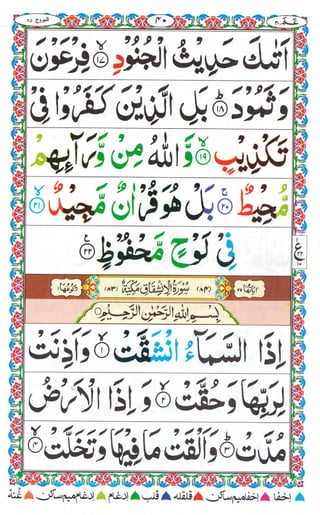 عم ٣٠ ٤٠ البروج ٨٥
اَتٰىكَ حَدِيْثُ الْجُنُوْدِ ۙ ١٧ فِرْعَوْنَ
وَثَمُوْدَ ؕ ١٨ بَلِ الَّذِيْنَ كَفَرُوْا فِىْ
تَكْذِيْبٍ ۙ ١٩ وَّاللّٰهُ مِنْ وَّرَآئِهِمْ
مُّحِيْطٌ ۚ ٢٠ بَلْ هُوَ قُرْاٰنٌ مَّجِيْدٌ ۙ ٢١
فِىْ لَوْحٍ مَّحْفُوْظٍ ٢٢
ع
اٰيَاتُهَا ٢٥ (٨٤) سُوْرَةُ الْاِنْشِقَاقِ مَكِّيَّةٌ (٨٣) رُكُوْعُهَا ١
بِسْمِ اللّٰهِ الرَّحْمٰنِ الرَّحِيْمِ
اِذَا السَّمَآءُ انْشَقَّتْ ۙ ١ وَاَذِنَتْ
لِرَبِّهَا وَحُقَّتْ ۙ ٢ وَاِذَا الْاَرْضُ
مُدَّتْ ؕ ٣ وَاَلْقَتْ مَا فِيْهَا وَتَخَلَّتْ ۙ ٤
اخفا اخفا میم ساکن قلقله قلب ادغام ادغام میم ساکن غنه